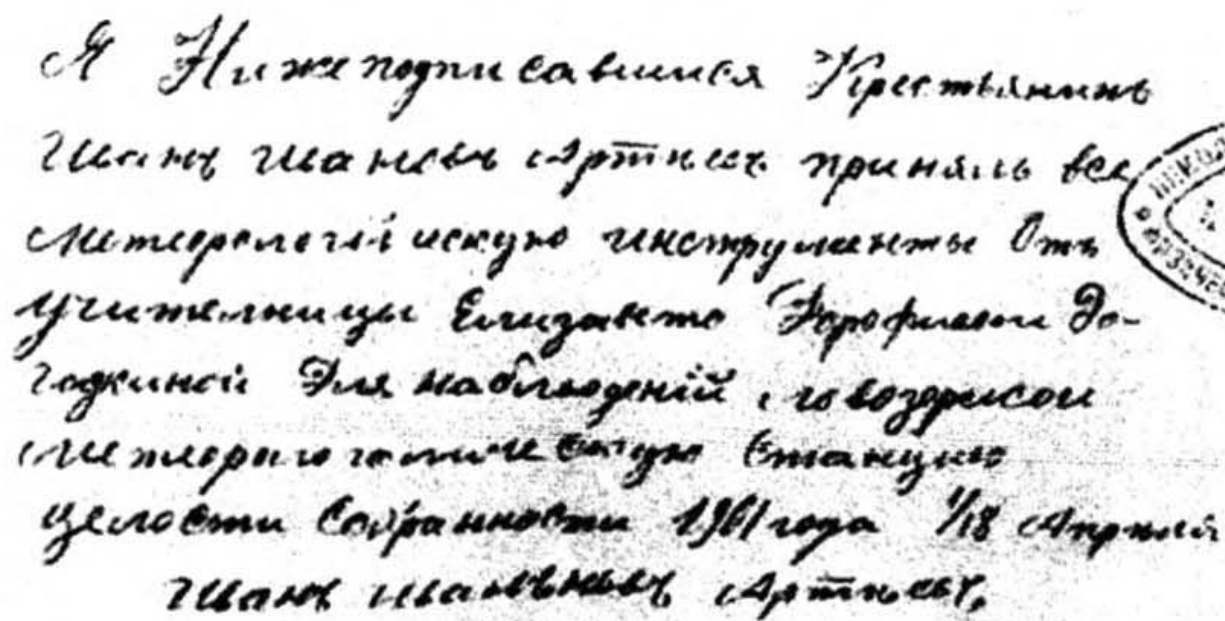 Я Нижеподписавшися Крестьянинъ
Иванъ Ивановъ Артѣевъ принялъ все
Метеорологическую инструменты Отъ
учителницы Елизавето До-
годкиной Для наблюденій
Метеорологическую Станцию
целости Сохранности 1901 года 1/18 Апрѣля
Иванъ Артѣевъ,